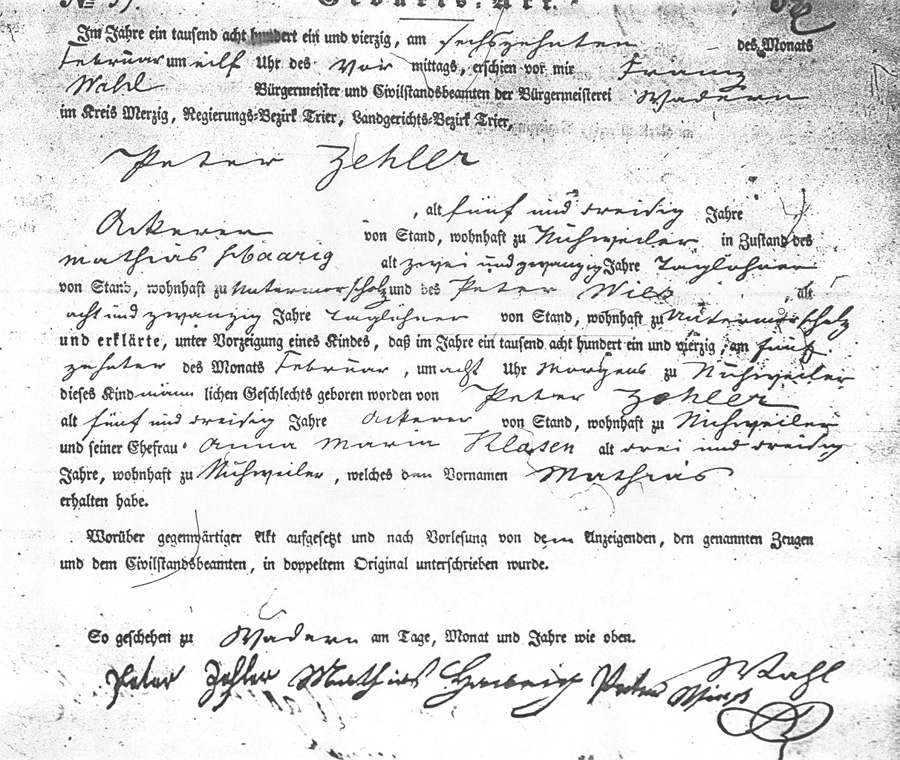 Geburts-Akt.
Im Jahre ein tausend acht hundert ein und vierzig, am sechszehnten des Monats
Februar um eilf Uhr des Vor mittags, erschien vor mir Franz
Wahl Bürgermeister und Civilstandsbeamten der Bürgermeisterei Wadern
im Kreis Merzig, Regierungs-Bezirk Trier, Landgerichts-Bezirk Trier,
Peter Zehler
, alt fünf und dreisig Jahre
Ackerer von Stand, wohnhaft zu Nuhweiler in Zustand des
Mathias alt zwei und zwanzig Jahre Taglöhner
von Stand, wohnhaft zu Untermorscholz und des Peter , alt
acht und zwanzig Jahre Taglöhner von Stand, wohnhaft zu Untermorscholz
und erklärte, unter Vorzeigung eines Kindes, daß im Jahre ein tausend acht hundert ein und vierzig, am fünf
zehnten des Monats Februar, um acht Uhr Morgens zu Nuhweiler
dieses Kind männ lichen Geschlechts geboren worden von Peter Zehler
alt fünf und dreisig Jahre Ackerer von Stand, wohnhaft zu Nuhweiler
und seiner Ehefrau Anna Maria Klasen alt drei und dreisig
Jahre, wohnhaft zu Nuhweiler, welches den Vornamen Mathias
erhalten habe.
Worüber gegenwärtiger Akt aufgesetzt und nach Vorlesung von dem Anzeigenden, den genannten Zeugen
und dem Civilstandsbeamten, in doppeltem Original unterschrieben wurde.
So geschehen zu Wadern am Tage, Monat und Jahre wie oben.
Peter Zehler Mathias Peter Wahl